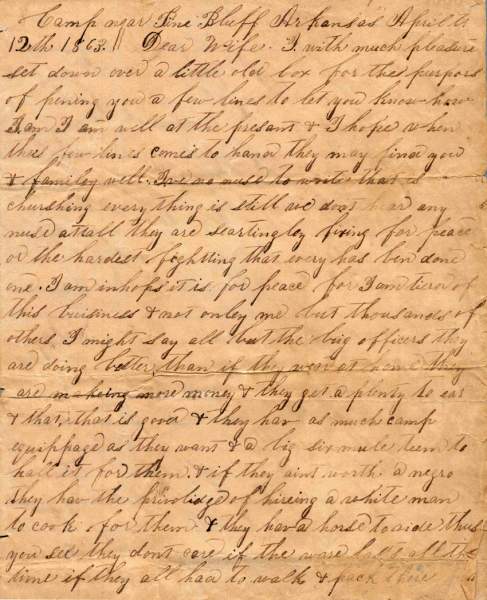 Camp near Pine Bluff Arkansas April th
12th 1863. Dear Wife. I with much pleasure
set down over a little old box for the purpors
of pening you a few lines to let you know how
I am I am well at the present & I hope when
thes few lines comes to hand they may find you
& familey well. Ive no nuse to write that is
churshing every thing is still we dont hear any
nuse attall they are seartingley fixing for peace
or the hardest fightting that every has ben done
one. I am inhops it is for peace for I am tierd of
this buisiness & not onley me but thousands of
others I might say all but the big officers they
are doing better than if they wear at home they
are makeing more money & they get a plenty to eat
& that that is good & they hav as much camp
equippage as they want & a big six mule teem to
hall it for them. & if they aint worth a negro
they hav the privolidge of hireing a white man
to cook for them & they hav a horse to ride thus
you see they dont care if the ware lasts all the
time if they all had to walk & pack there